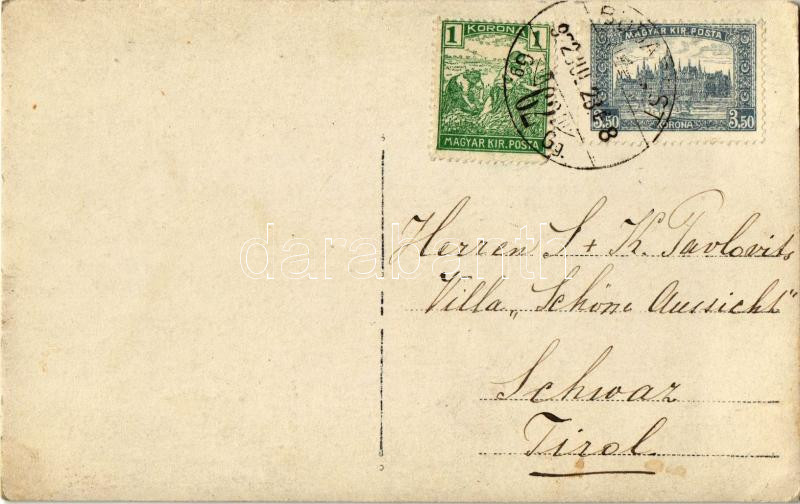 1 KORONA 1
MAGYAR KIR. POSTA
MAGYAR KIR. POSTA
3.50 KORONA 3.50
BUDAPEST
922 JUL 23
darabanth
Herren S + K. Pavlovits
Villa „Schöne Aussicht"
Schwaz
Tirol